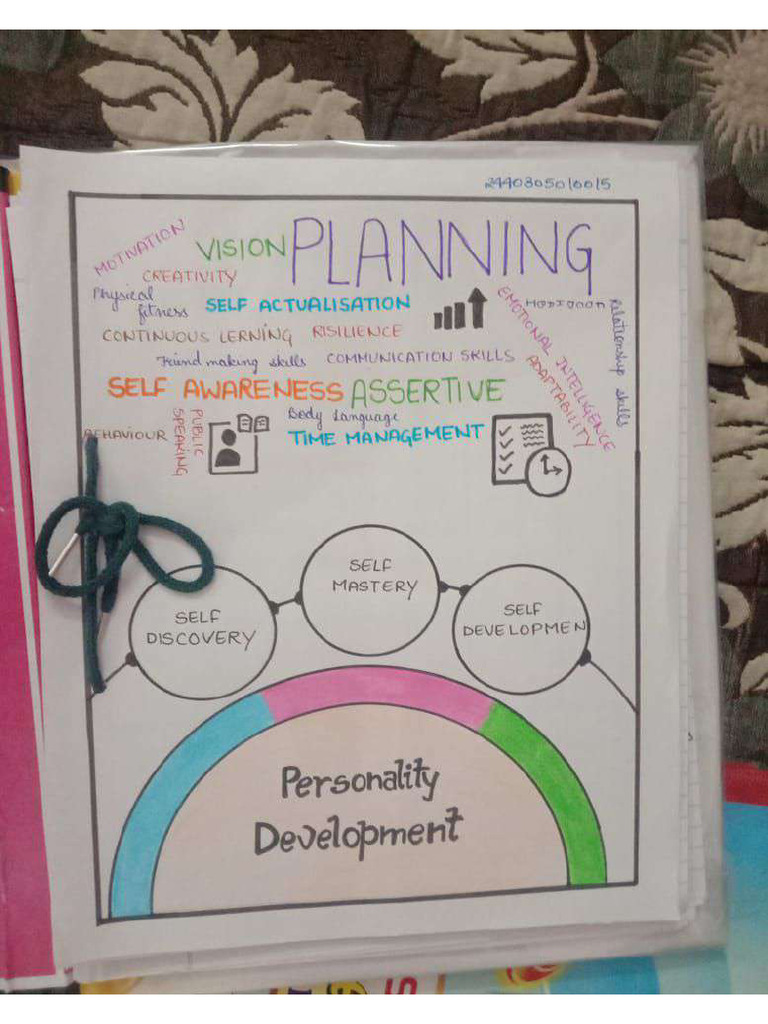 2440305010015
MOTIVATION
VISION
PLANNING
CREATIVITY
Physical
fitness
SELF ACTUALISATION
EMOTIONAL INTELLIGENCE
Relationship skills
CONTINUOUS LERNING
RISILIENCE
Friend making skills
COMMUNICATION SKILLS
ADAPTABILITY
SELF AWARENESS
ASSERTIVE
BEHAVIOUR
PUBLIC
SPEAKING
Body Language
TIME MANAGEMENT
SELF
DISCOVERY
SELF
MASTERY
SELF
DEVELOPMEN
Personality
Development